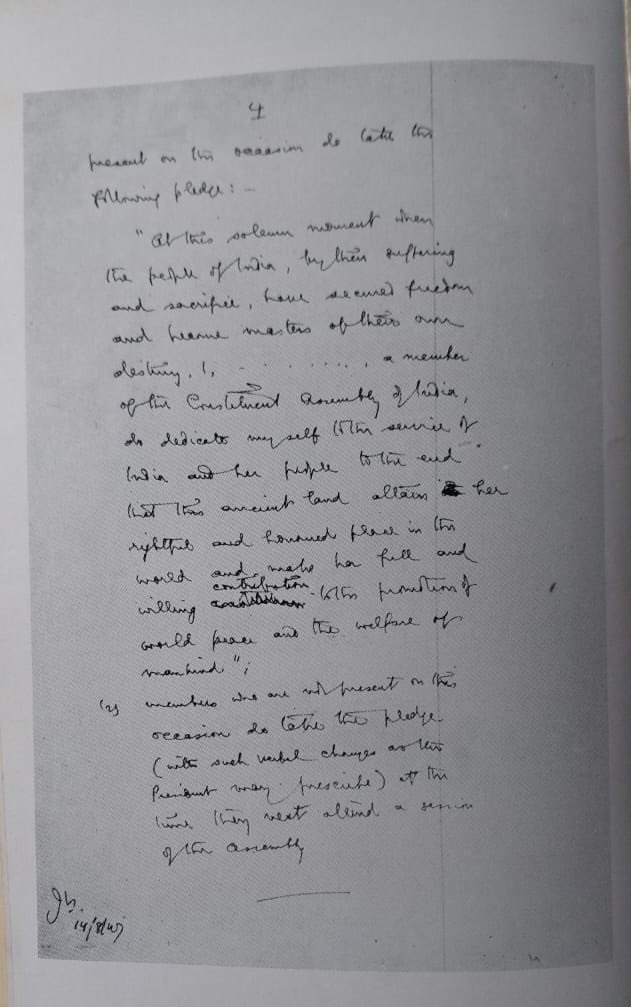 4
present on this occasion do take the
following pledge: —
"At this solemn moment when
the people of India, by their suffering
and sacrifice, have secured freedom
and become masters of their own
destiny, I, . . . . . . . . ., a member
of the Constituent Assembly of India,
do dedicate myself to the service of
India and her people to the end
that this ancient land attain her
rightful and honoured place in the
world and make her full and
willing contribution to the promotion of
world peace and the welfare of
mankind";
(2) members who are not present on this
occasion do take the pledge
(with such verbal changes as the
President may prescribe) at the
time they next attend a session
of the Assembly
14/8/47